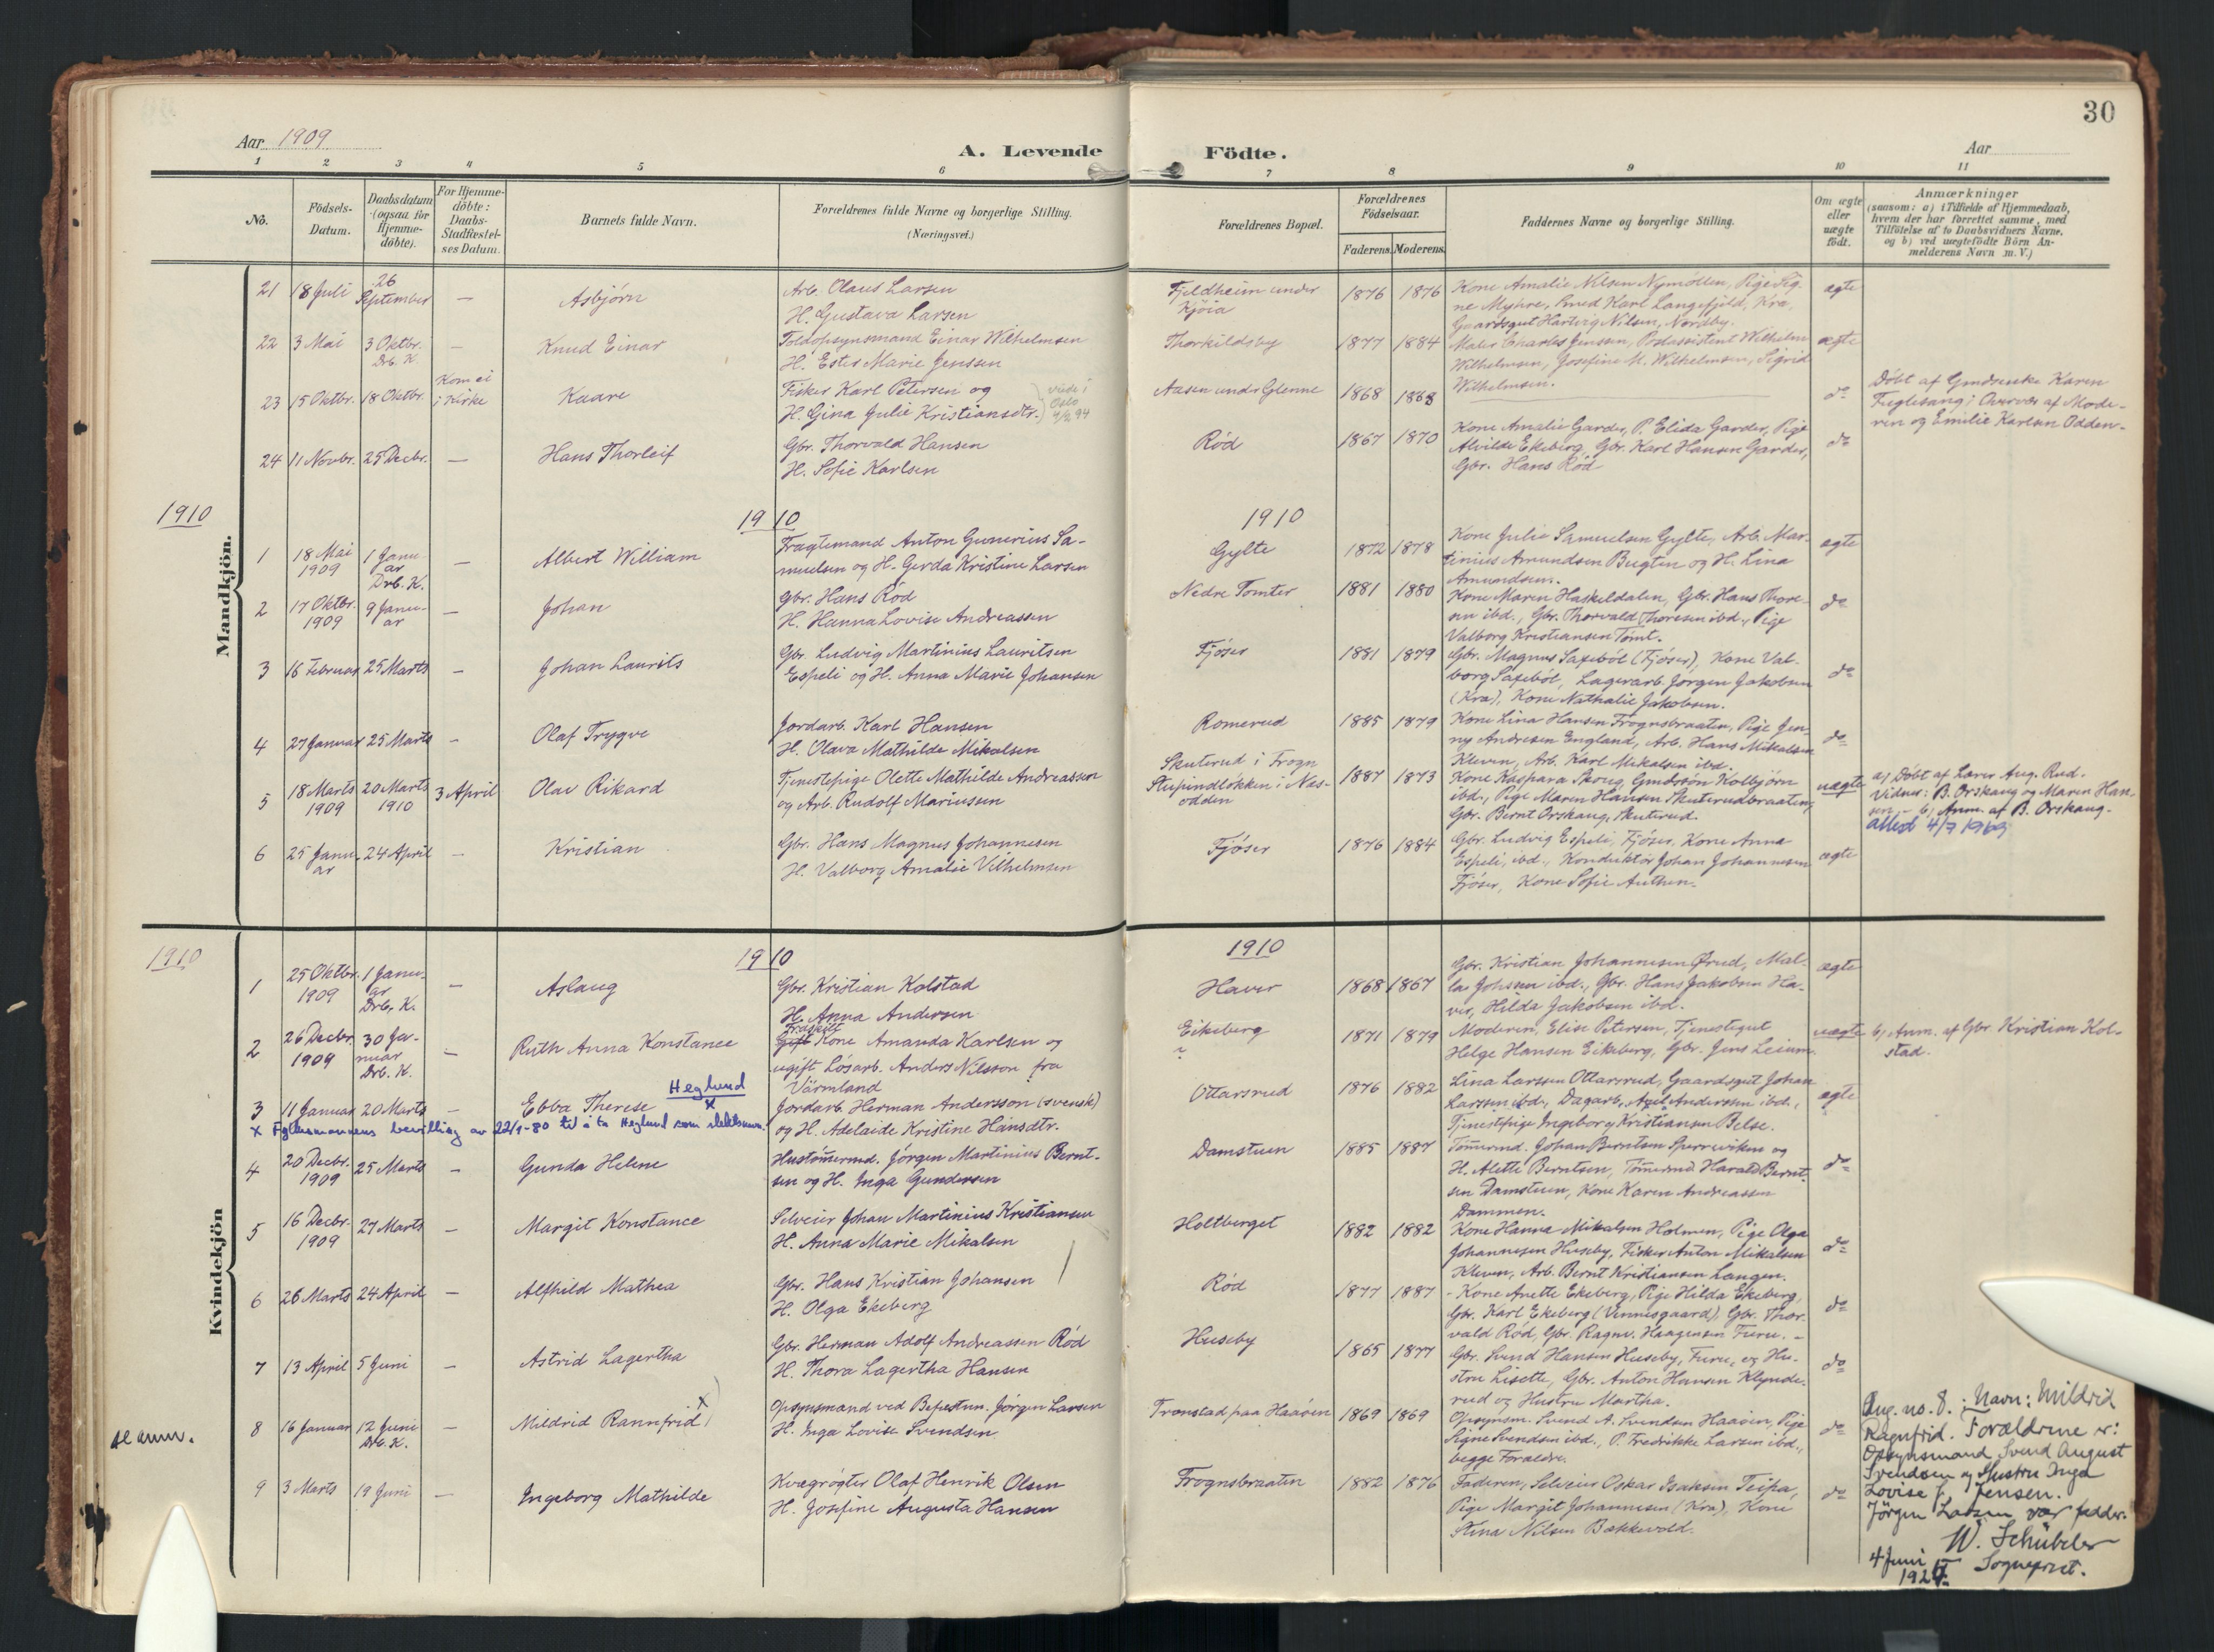 30
Aar 1909
A. Levende Födte.
Aar
1 2 3 4 5 6 7 8 9 10 11
No.
Födsels-Datum.
Daabsdatum (ogsaa for Hjemme-döbte).
For Hjemme-döbte: Daabs-Stadfæstel-ses Datum.
Barnets fulde Navn.
Forældrenes fulde Navne og borgerlige Stilling. (Næringsvei.)
Forældrenes Bopæl.
Forældrenes Födselsaar.
Faderens. Moderens.
Faddernes Navne og borgerlige Stilling.
Om ægte eller uægte födt.
Anmærkninger
(saasom: a) i Tilfælde af Hjemmedaab,
hvem der har forrettet samme, med
Tilföielse af to Daabsvidners Navne.
og b) ved uægtefödte Börn An-
melderens Navn m. V.)
Mandkjön.
21 18 Juli 26 September — Asbjørn
Arb. Olaus Larsen
H. Gustava Larsen
Fjeldheim under Kjøia 1876 1876
Kone Amalie Nilsen Nymøllen, Pige Sig-
ne Myhre, Smed Karl Langefjeld, Kra,
Gaardsgut Hartvig Nilsen, Nordby.
ægte
22 3 Mai 3 Oktbr. Drb. K. — Knud Einar
Toldopsynsmand Einar Wilhelmsen
H. Ester Marie Jenssen
Thorkildsby 1877 1884
Maler Charles Jenssen, Postassistent Wilhelm
Wilhelmsen, Josefine M. Wilhelmsen, Sigrid
Wilhelmsen.
ægte
23 15 Oktbr. 18 Oktbr. Kom ei i Kirke Kaare
Fisker Karl Petersen og
H. Gina Julie Kristiansdtr.
viede i Oslo 4/2 94
Aasen under Glenne 1868 1868
do
Döbt af Gmdsenke Karen
Fuglesang i Overvær af Mode-
ren og Emilie Karlsen Odden-
24 11 Novbr. 25 Decbr. — Hans Thorleif
Gbr. Thorvald Hansen
H. Sofie Karlsen
Rød 1867 1870
Kone Amalie Garder, P. Elida Garder, Pige
Alvilde Ekeberg, Gbr. Karl Hansen Garder,
Gbr. Hans Rød
do
1910 1910 1910
1 18 Mai 1909 1 Janu-ar Drb. K. — Albert William
Fragtemand Anton Gunerius Sa-
muelsen og H. Gerda Kristine Larsen
Gylte 1872 1878
Kone Julie Samuelsen Gylte, Arb. Mar-
tinius Amundsen Bugten og H. Lina
Amundsen.
ægte
2 17 Oktbr. 1909 9 Janu-ar — Johan
Gbr. Hans Rød
H. Hanna Lovise Andreassen
Nedre Tomter 1881 1880
Kone Maren Haskeldalen, Gbr. Hans Thore-
sen ibd., Gbr. Thorvald Thoresen ibd., Pige
Valborg Kristiansen Tomt.
do
3 16 Februar 25 Marts — Johan Laurits
Gbr. Ludvig Martinius Lauritsen
Espeli og H. Anna Marie Johansen
Fjøser 1881 1879
Gbr. Magnus Saxebøl (Fjøser), Kone Val-
borg Saxebøl, Lagerarb. Jørgen Jakobsen
(Kra), Kone Nathalie Jakobsen.
do
4 27 Januar 25 Marts — Olaf Trygve
Jordarb. Karl Hansen
H. Olava Mathilde Mikalsen
Romerud 1885 1879
Kone Lina Hansen Frognsbraaten, Pige Jen-
ny Andresen England, Arb. Hans Mikalsen
Kleven, Arb. Karl Mikalsen ibd.
do
5 18 Marts 1909 20 Marts 1910 3 April Olav Rikard
Tjenestepige Olette Mathilde Andreassen
og Arb. Rudolf Mariussen
Skuterud i Frogn
Stupindløkken i Næs-
odden 1887 1873
Kone Kaspara Skoug, Gmdssøn Kolbjørn
ibd., Pige Maren Hansen Skuterudbraaten,
Gbr. Bernt Orskaug, Skuterud.
uægte
a) Döbt af Lærer Aug. Rud.
Vidner: B. Orskaug og Maren Han-
sen – b) Anm. af B. Orskaug.
attest 4/7 1969
6 25 Janu-ar 24 April — Kristian
Gbr. Hans Magnus Johannesen
H. Valborg Amalie Vilhelmsen
Fjøser 1876 1884
Gbr. Ludvig Espeli, Fjøser, Kone Anna
Espeli, ibd., Konduktør Johan Johannesen
Fjøser, Kone Sofie Authen.
ægte
Kvindekjön
1910 1910 1910
1 25 Oktbr. 1909 1 Janu-ar Drb. K. — Aslaug
Gbr. Kristian Kolstad
H. Anna Andersen
Haver 1868 1867
Gbr. Kristian Johannesen Ørud, Mal-
la Johssen ibd., Gbr. Hans Jakobsen Ha-
ver, Hilda Jakobsen ibd.
ægte
2 26 Decbr. 1909 30 Ja-nuar Drb. K. — Ruth Anna Konstance
Fraskilt
gift Kone Amanda Karlsen og
ugift Løsarb. Anders Nilsson fra
Värmland
Eikeberg 1871 1879
Moderen, Elise Petersen, Tjenestegut
Helge Hansen Eikeberg, Gbr. Jens Leium.
uægte
b) Anm. af Gbr. Kristian Kol-
stad.
3 11 Januar 20 Marts — Ebba Therese Heglund x
x Fylkesmannens bevilling av 22/1-80 til å ta Heglund som slektsnavn.
Jordarb. Herman Andersson (svensk)
og H. Adelaide Kristine Hansdtr.
Ottarsrud 1876 1882
Lina Larssen Ottarsrud, Gaardsgut Johan
Larssen ibd., Dagarb. Axel Anderssen ibd.,
Tjenestepige Ingeborg Kristiansen Belse.
ægte
4 20 Decbr. 1909 25 Marts — Gunda Helene
Hustømermd. Jørgen Martinius Bernt-
sen og H. Inga Gundersen
Damstuen 1885 1887
Tømermd. Johan Berntsen Sperreviken og
H. Alette Berntsen, Tømermd Harald Bernt-
sen Damstuen, Kone Karen Andreassen
Dammen.
do
5 16 Decbr. 1909 27 Marts — Margit Konstance
Selveier Johan Martinius Kristiansen
H. Anna Marie Mikalsen
Holtberget 1882 1882
Kone Hanna Mikalsen Holmen, Pige Olga
Johannesen Huseby, Fisker Anton Mikalsen
Kleven, Arb. Bernt Kristiansen Langen.
do
6 26 Marts 24 April — Alfhild Mathea
Gbr. Hans Kristian Johansen
H. Olga Ekeberg
Rød 1877 1887
- Kone Anette Ekeberg, Pige Hilda Ekeberg,
Gbr. Karl Ekeberg (Vennesgaard), Gbr. Thor-
vald Rød, Gbr. Ragnv. Haagensen Furu. –
do
7 13 April 5 Juni — Astrid Lagertha
Gbr. Herman Adolf Andreassen Rød
H. Thora Lagertha Hansen
Huseby 1865 1877
Gbr. Svend Hansen Huseby, Furu, og Hu-
stru Lisette, Gbr. Anton Hansen Klynde-
rud og Hustru Martha.
do
se anm.
8 16 Januar 12 Juni Drb. K. — Mildrid Rannfrid x
Opsynsmand ved Befestn. Jørgen Larsen
H. Inga Lovise Svendsen
Tronstad paa Haaøen 1869 1869
Opsynsm. Svend A. Svendsen Haaøen, Pige
Signe Svendsen ibd., P. Fredrikke Larsen ibd.,
begge Forældre.
do
Ang. no. 8. Navn: Mildrid
Ragnfrid. Forældrene er:
Opsynsmand Svend August
Svendsen og Hustru Inga
Lovise f. Jensen.
Jörgen Larsen var fadder.
W. Schübeler
Sogneprest.
4 Juni
9 3 Marts 19 Juni — Ingeborg Mathilde
Kvægrøgter Olaf Henrik Olsen
H. Josefine Augusta Hansen
Frognsbraaten 1882 1876
Faderen, Selveier Oskar Isaksen Teipa,
Pige Margit Johannesen (Kra), Kone
Stina Nilsen Bakkevold.
do